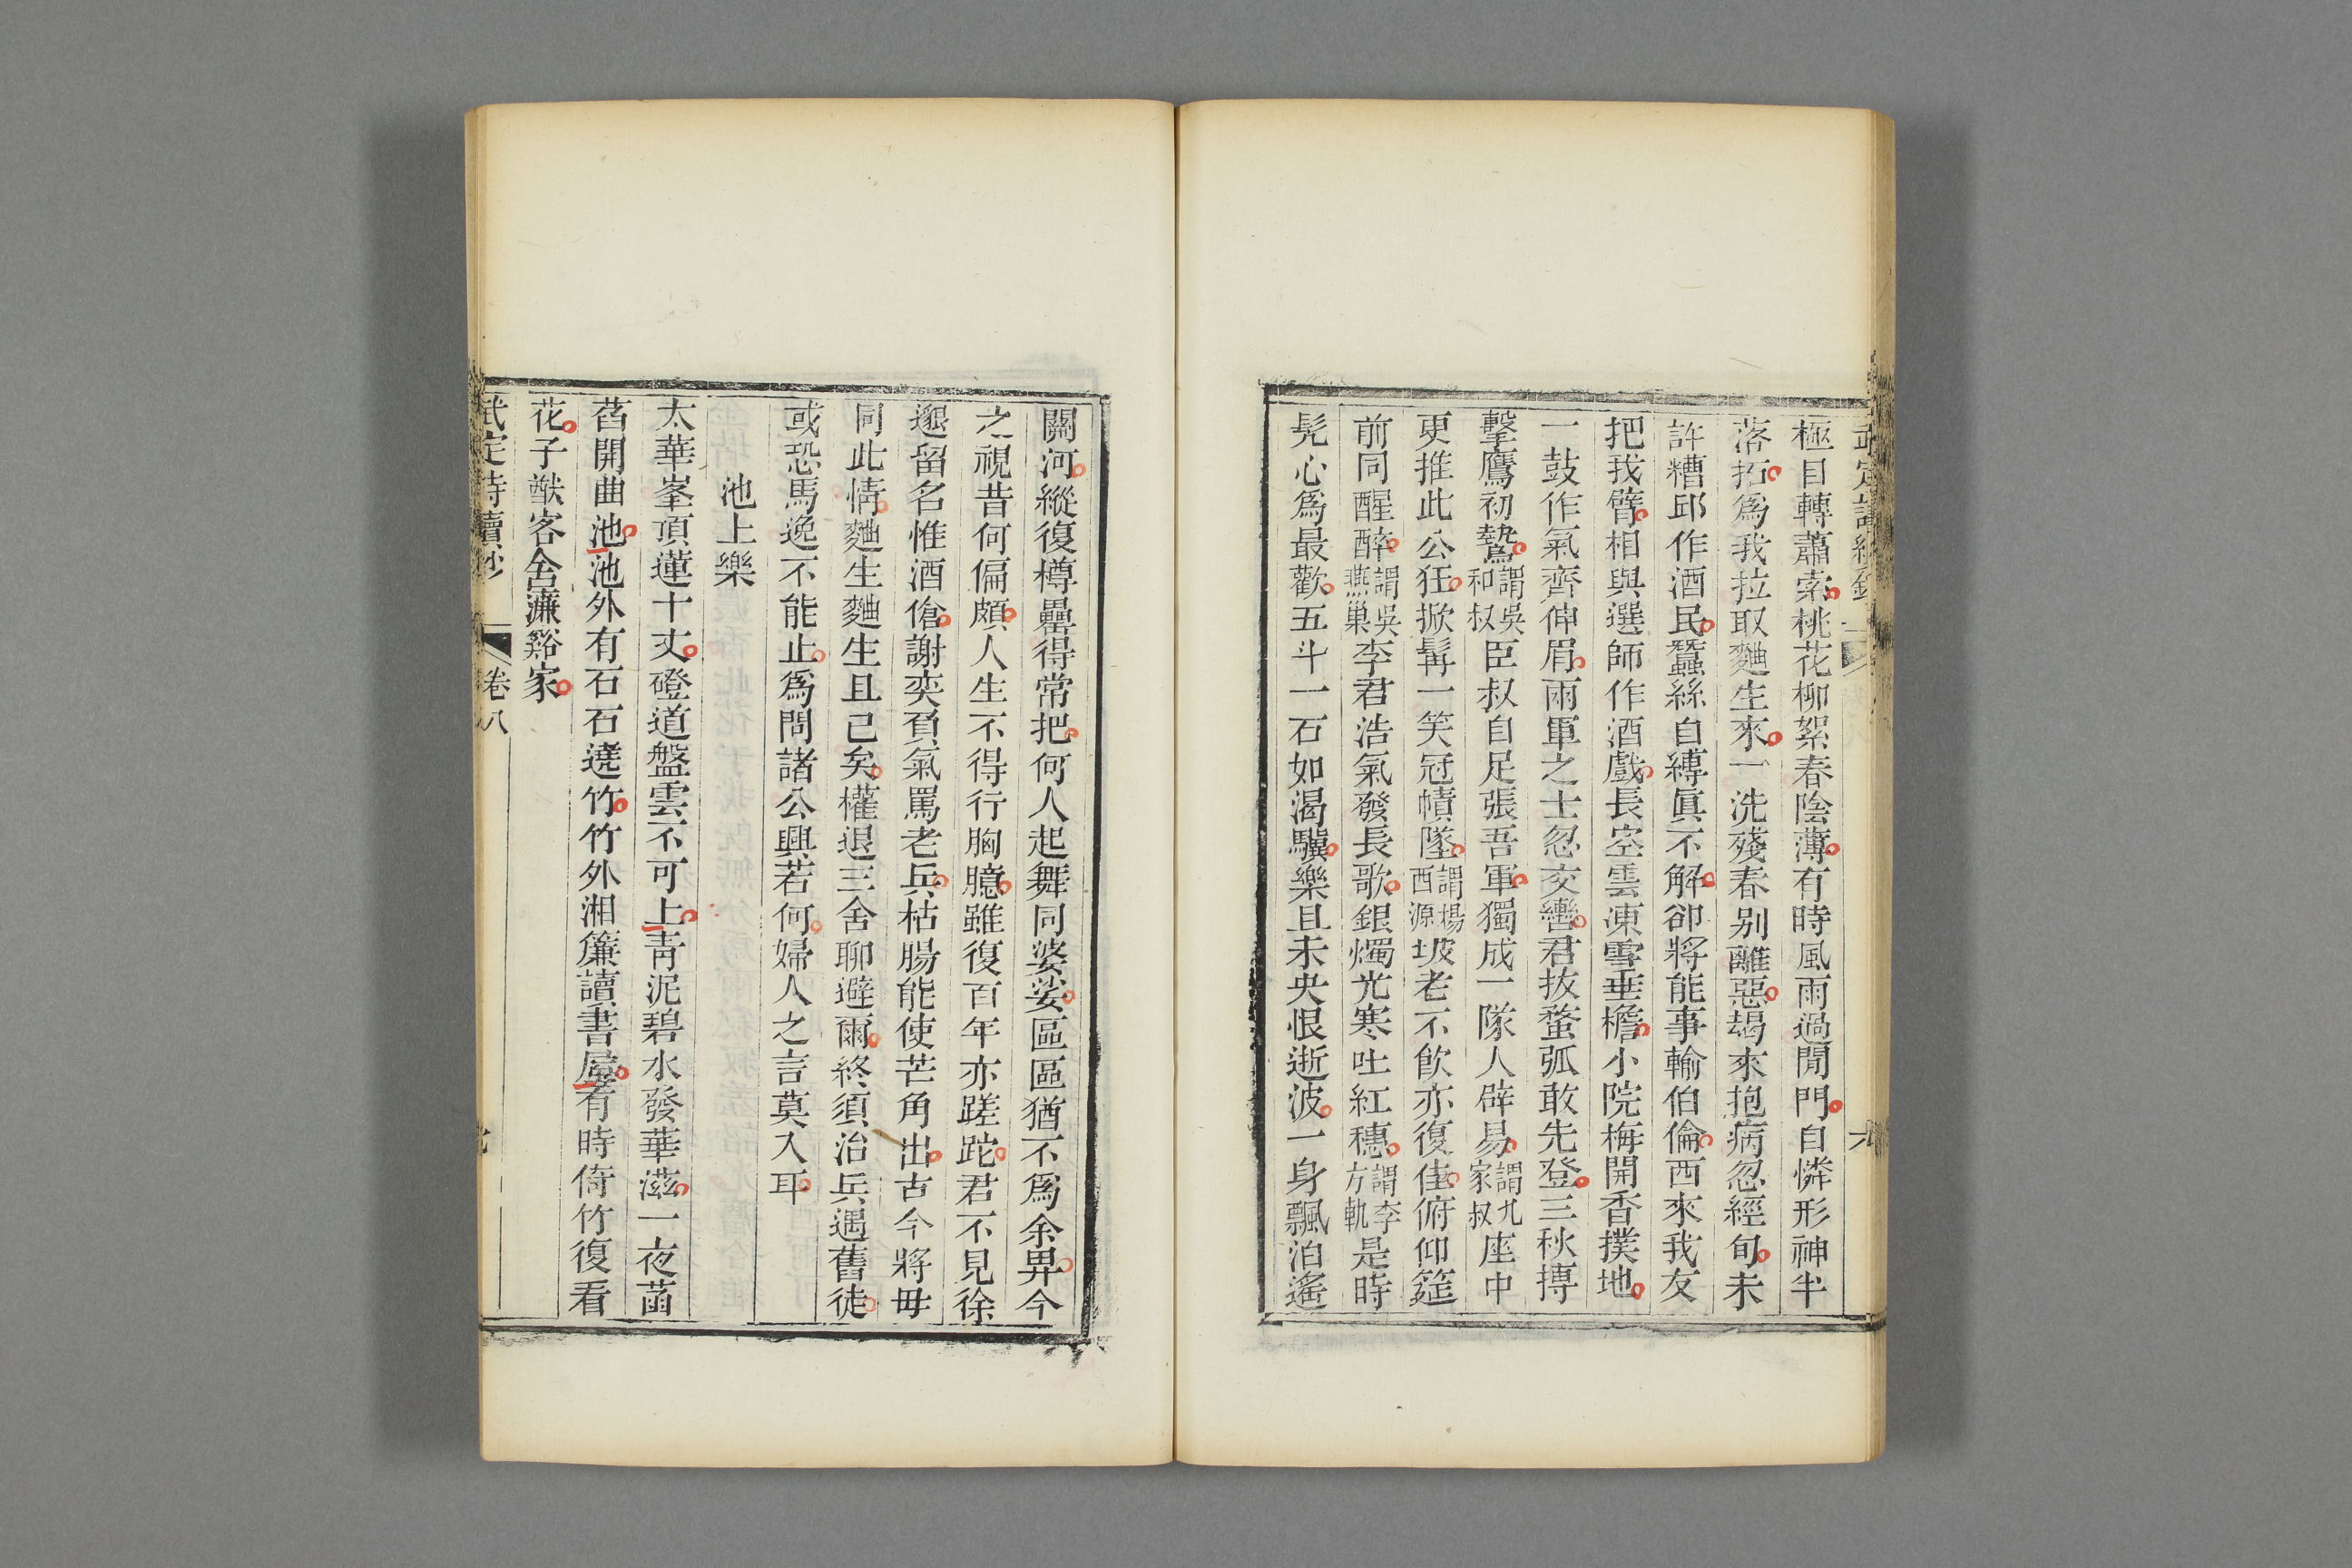 極目轉蕭索桃花柳絮春陰薄有時風雨過閒門自憐形神半
落拓爲我拉取麯生來一洗殘春别離惡朅來抱病忽經旬未
許糟邱作酒民蠶絲自縛眞不解卻將能事輸伯倫西來我友
把我臂相與選師作酒戲長空雲凍雪垂檐小院梅開香撲地
一鼓作氣齊伸眉兩軍之士忽交轡君抜蝥弧敢先登三秋摶
擊鷹初鷙謂吳和叔臣叔自足張吾軍獨成一隊人辟易謂九家叔座中
更推此公狂掀髯一笑冠幘墜謂楊西源坡老不飮亦復佳俯仰筵
前同醒醉謂吳燕巢李君浩氣發長歌銀燭光寒吐紅穗謂李方軌是時
髡心爲最歡五斗一石如渴驥樂且未央恨逝波一身飄泊遙
關河縱復樽罍得常把何人起舞同婆娑區區猶不爲余畀今
之視昔何偏頗人生不得行胸臆雖復百年亦蹉跎君不見徐
邈留名惟酒傖謝奕負氣罵老兵枯腸能使芒角出古今將毋
同此情麯生麯生且已矣權退三舍聊避爾終須治兵遇舊徒
或恐馬逸不能止爲問諸公興若何婦人之言莫入耳
池上樂
太華峯頂蓮十丈磴道盤雲不可上靑泥碧水發華滋一夜菡
萏開曲池池外有石石遶竹竹外湘簾讀書屋有時倚竹復看
花子猷客舍濂谿家
武定詩續鈔 卷八